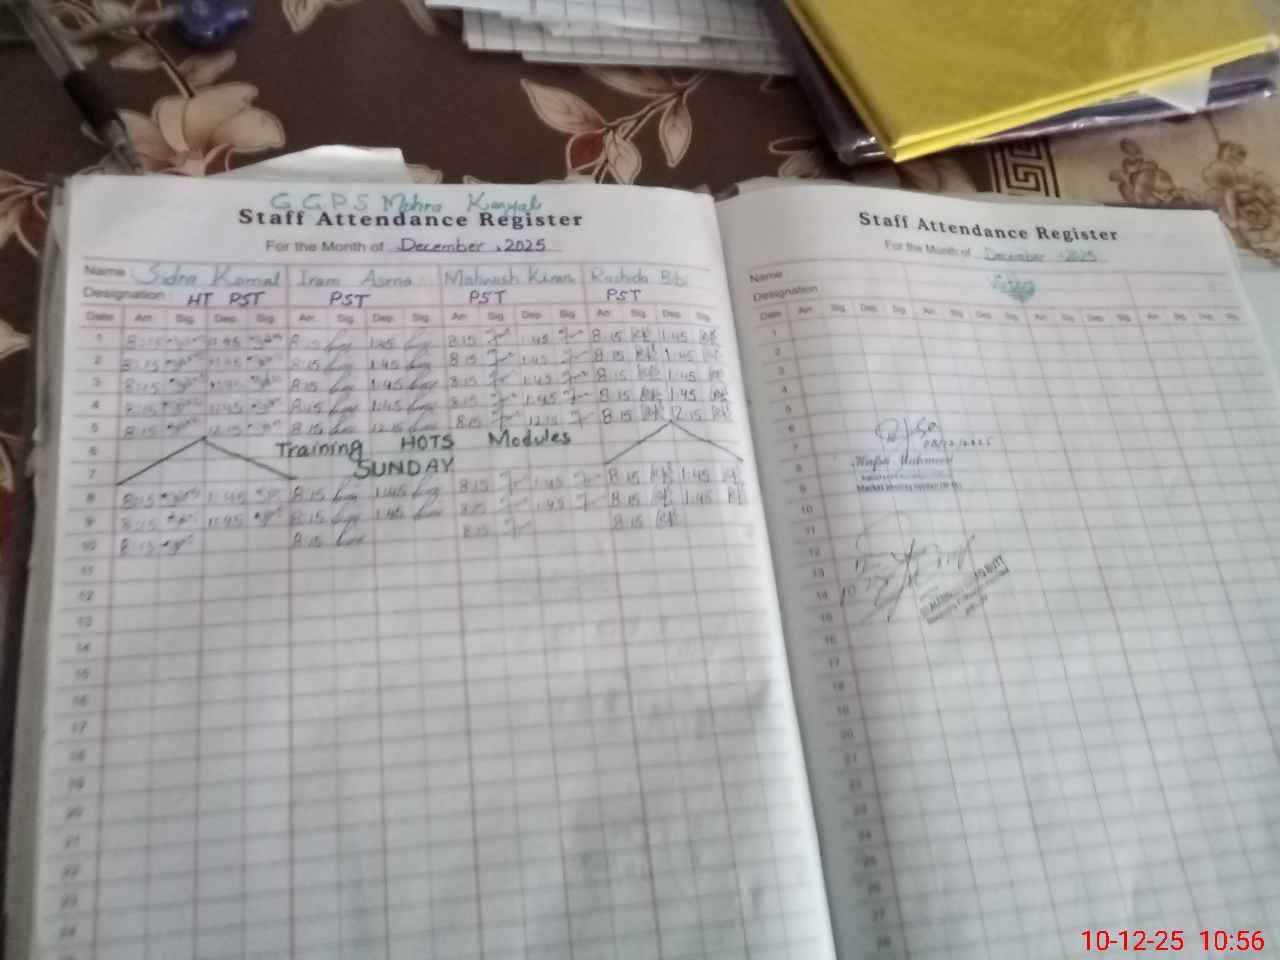 G.G.P.S Mohra Kanyal
Staff Attendance Register
For the Month of December, 2025
Name Sidra Komal Iram Asma Mahnash Kiran Rashida Bibi
Designation HT PST PST PST PST
Date Arr. Sig. Dep. Sig. Arr. Sig. Dep. Sig. Arr. Sig. Dep. Sig. Arr. Sig. Dep. Sig.
1 8:15 1:45 8:15 1:45 8:15 1:45 8:15 1:45
2 8:15 1:45 8:15 1:45 8:15 1:45 8:15 1:45
3 8:15 1:45 8:15 1:45 8:15 1:45 8:15 1:45
4 8:15 1:45 8:15 1:45 8:15 1:45 8:15 1:45
5 8:15 12:15 8:15 12:15 8:15 12:15 8:15 12:15
6 Training HOTS Modules
7 SUNDAY
8 8:15 1:45 8:15 1:45 8:15 1:45 8:15 1:45
9 8:15 1:45 8:15 1:45 8:15 1:45 8:15 1:45
10 8:15 8:15 8:15 8:15
11
12
13
14
15
16
17
18
19
20
21
22
23
24
Staff Attendance Register
For the Month of December, 2025
Name
Designation
Date Arr. Sig. Dep. Sig. Arr. Sig. Dep. Sig. Arr. Sig. Dep. Sig.
1
2
3
4
5
6
08/12/2025
7
8
9
10
11
12
13
14
BUTT
15
16
17
18
19
20
21
22
23
24
25
26
27
28
10-12-25 10:56